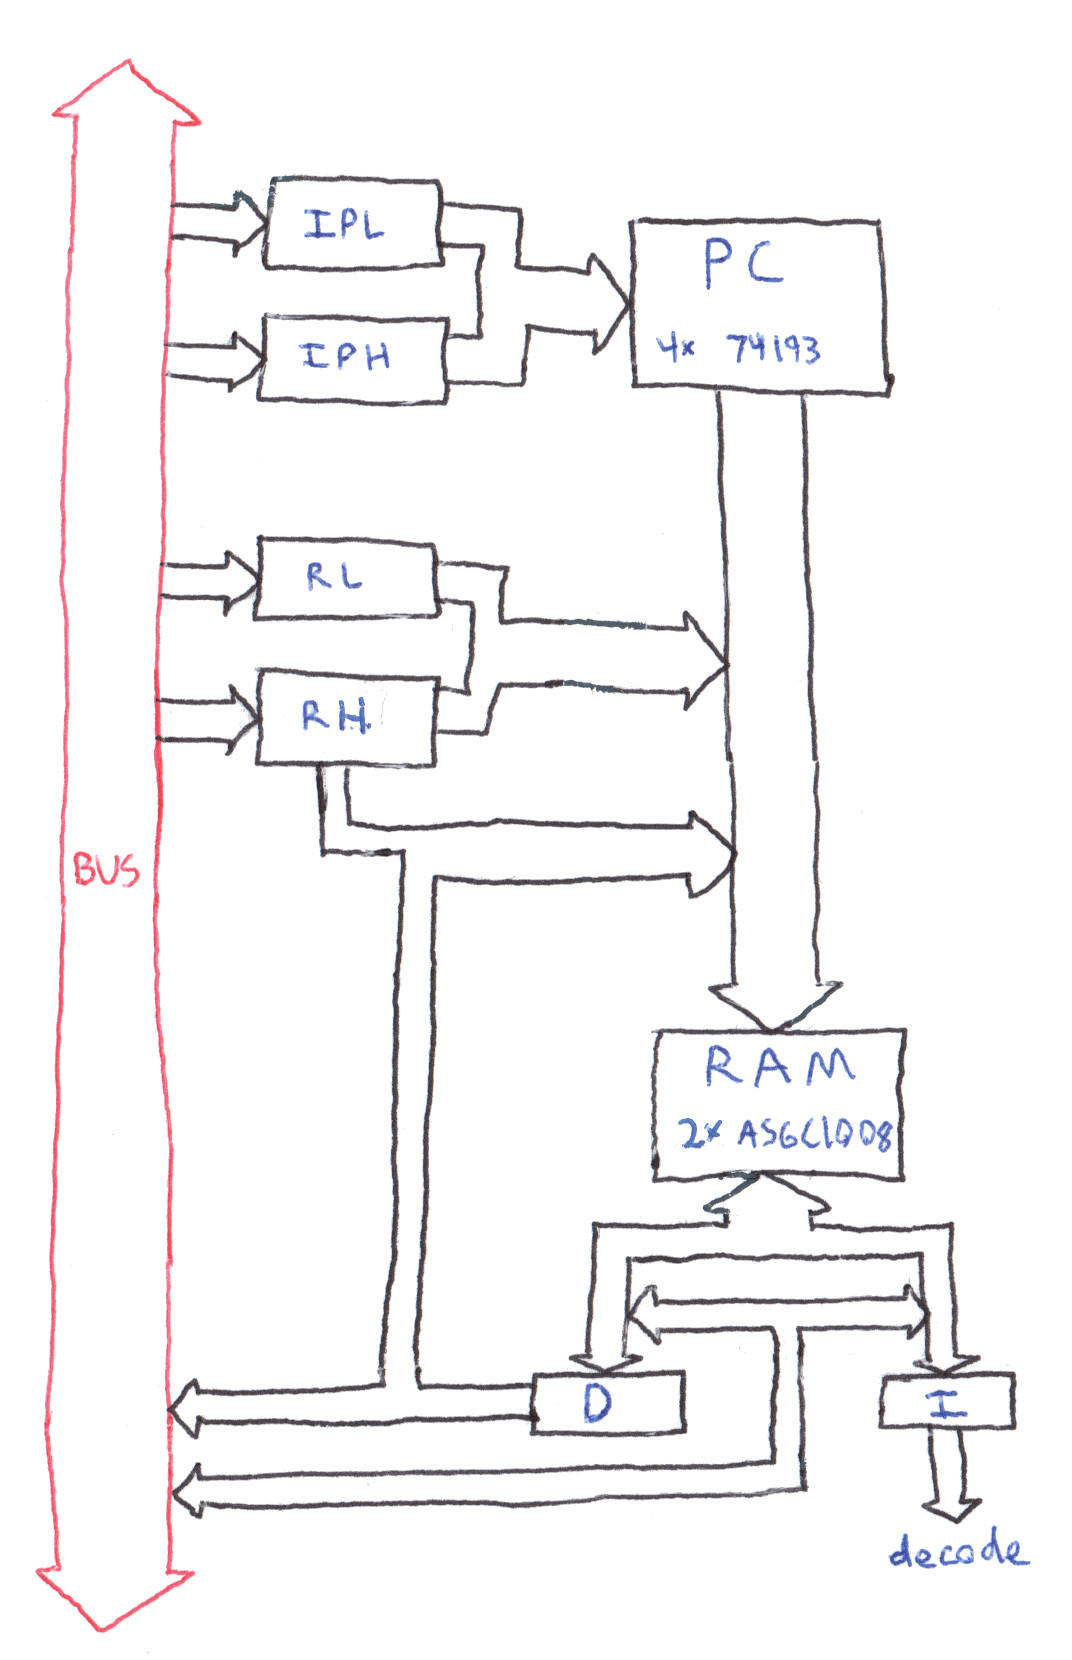 IPL
IPH
PC
4x 74193
RL
RH
BUS
RAM
2x AS6C1008
D
I
decode